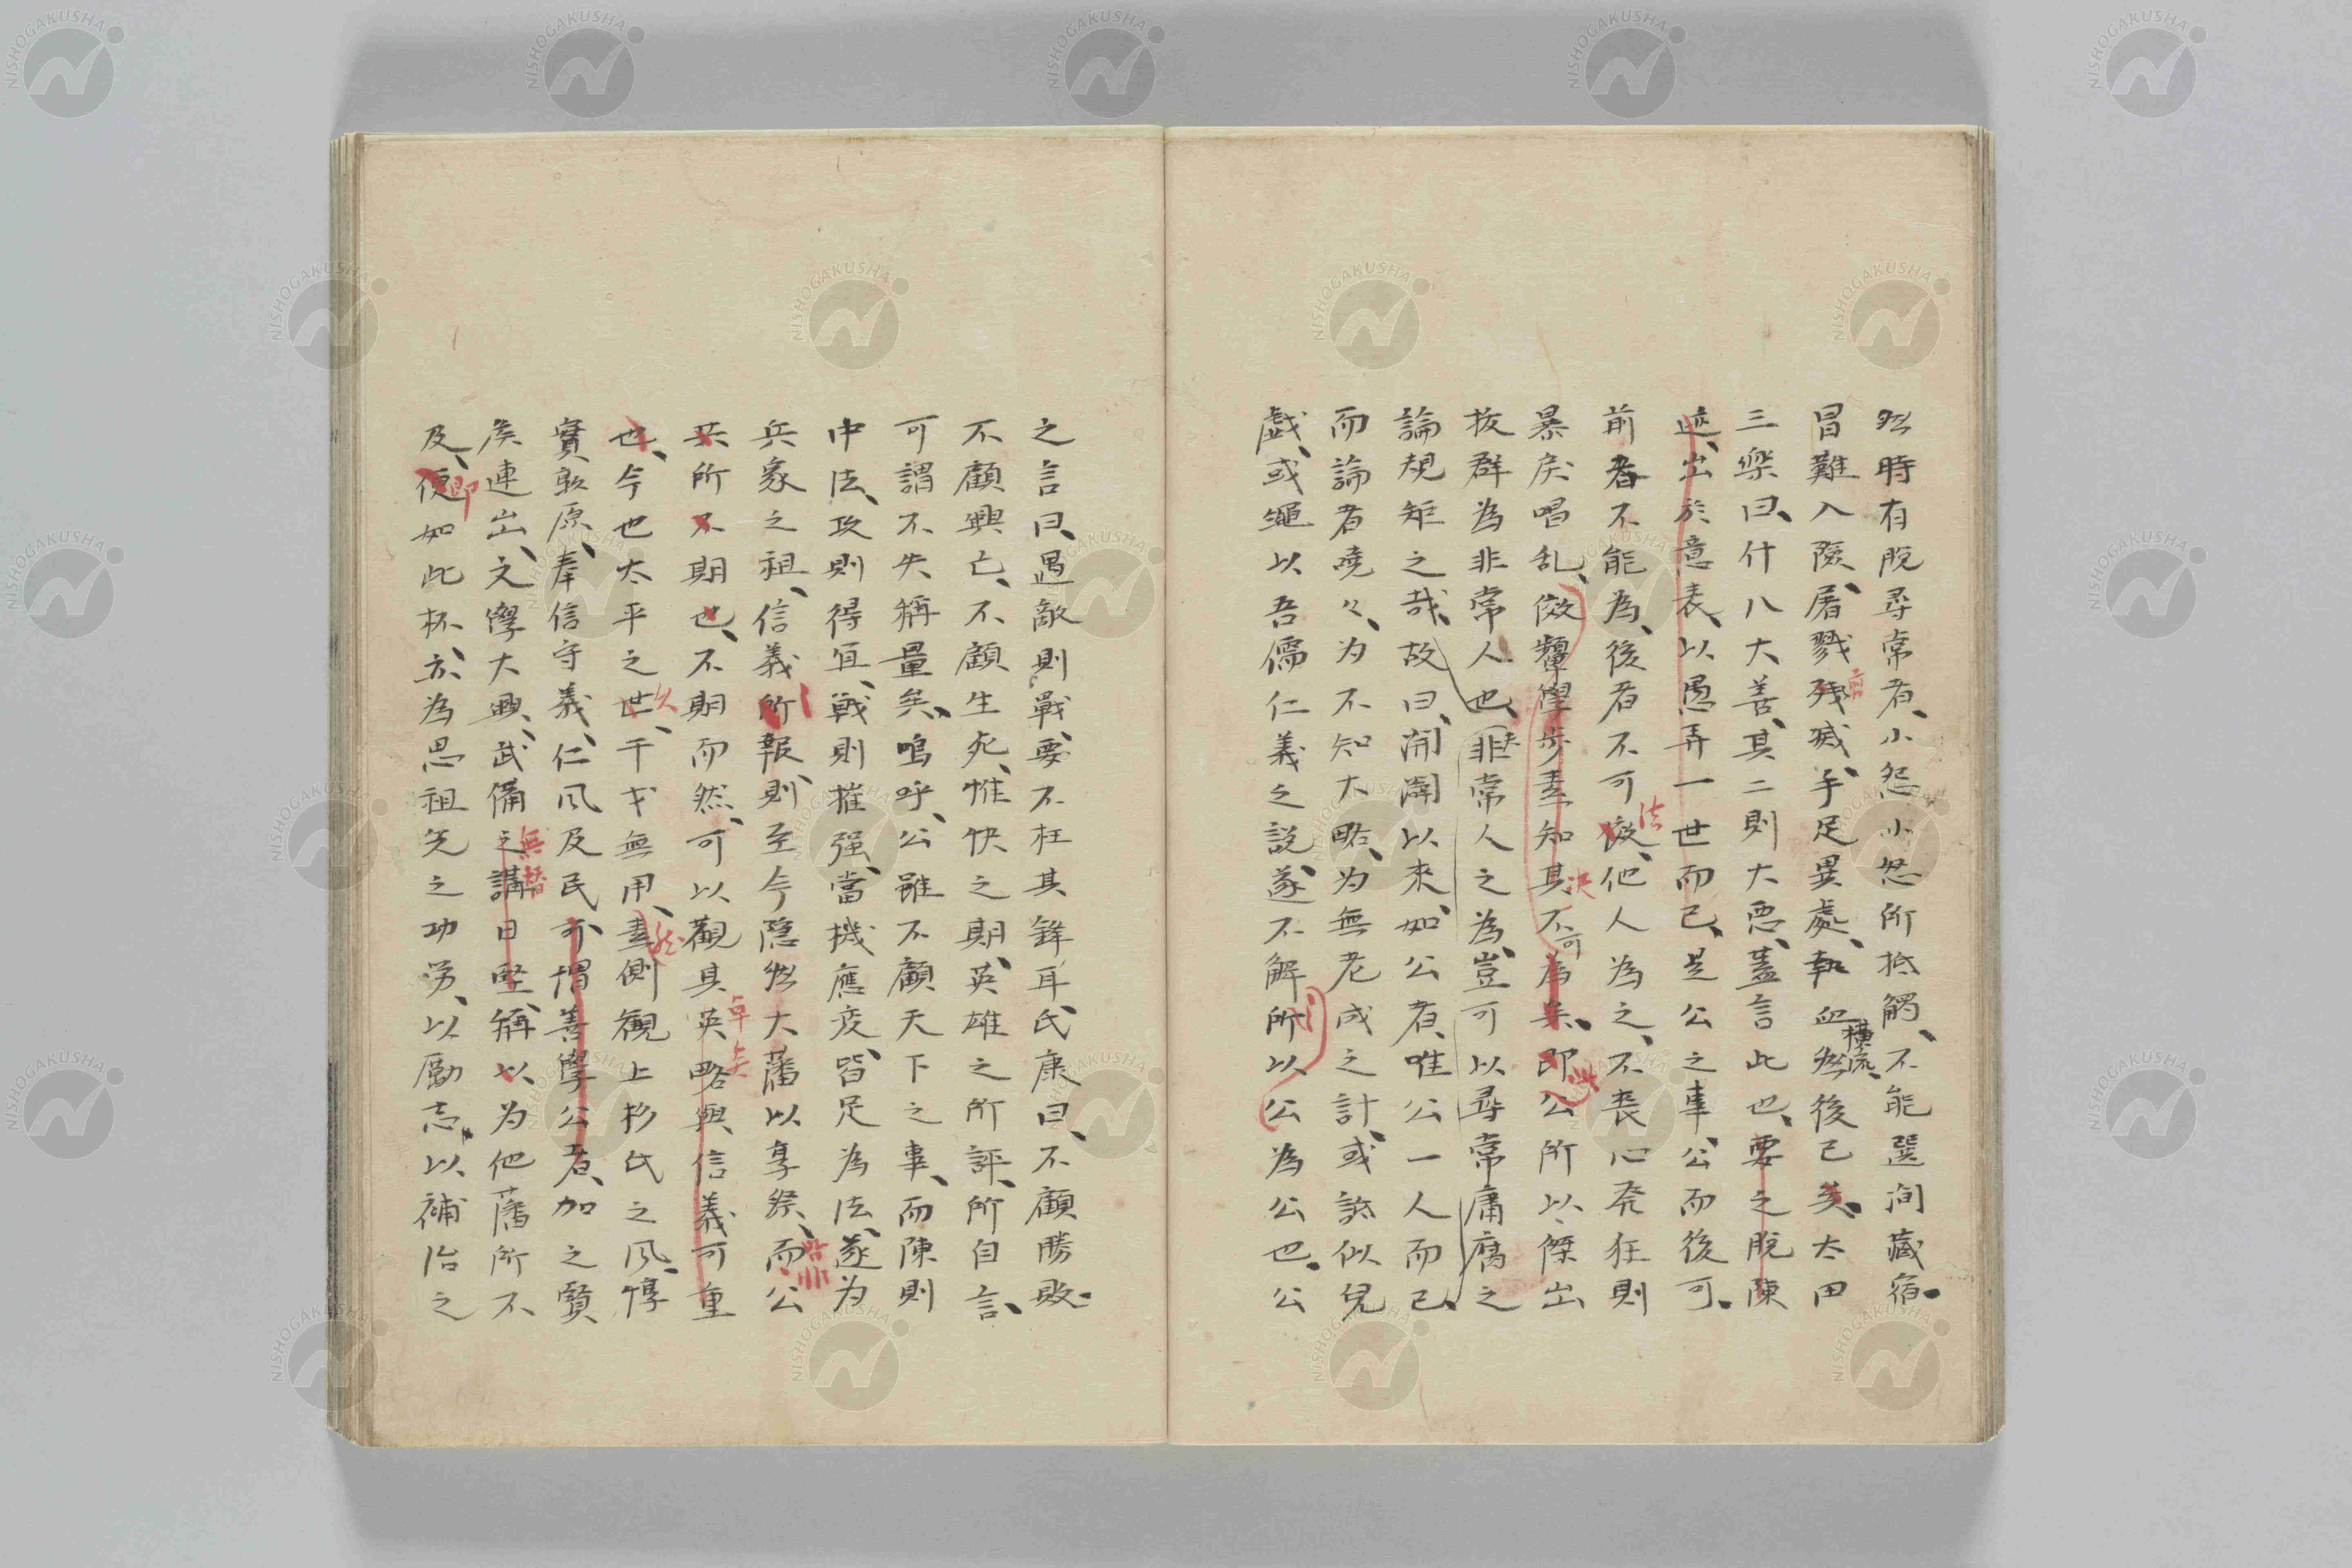 然時有脫尋常者、小怨小怒所抵觸、不能選洵藏宿。
冒難入險、屠戮殘滅、手足異處、執血橫流、然後已矣、太田
三樂曰、什八大善、其二則大惡、蓋言此也、要之脫陳
迹、出於意表、以愚弄一世而已、是公之事、公而後可。
前者不能為、後者不可傚法、他人為之、不喪心発狂則
暴戾唱乱、傚顰學步、耋知其決不可為矣、即此公所以傑出
抜群為非常人也、夫非常人之為、豈可以尋常庸腐之
論規矩之哉、故曰、開闢以来、如公者、唯公一人而已、
而論者嘵々、为不知大略、为無老成之計、或訴似兒
戯、或繩以吾儒仁義之説、遂不解所以公為公也。公
之言曰、遇敵則戰、要不枉其鋒耳、氏康曰、不顧勝敗
不顧興亡、不顧生死、惟快之期、英雄之所評、所自言、
可謂不失稱量矣、嗚呼、公雖不顧天下之事、而陳則
中法、攻則得宜、戰則摧强、當機應変、皆足為法、遂为
兵家之祖、信義所報、則至今隐然大藩以享祭、而公
其所不期也、不期而然、可以觀其英略卓矣與、信義可重
也、今也太平之世、以干戈無用、耋側観上杉氏之風、惇
實敦厚、奉信守義、仁風及民、可謂善學公者、加之賢
侯連出、文學大興、武備之講無替日堅、稱以为他藩所不
及、便即如此杯、亦為思祖先之功労、以勵志、以補治之